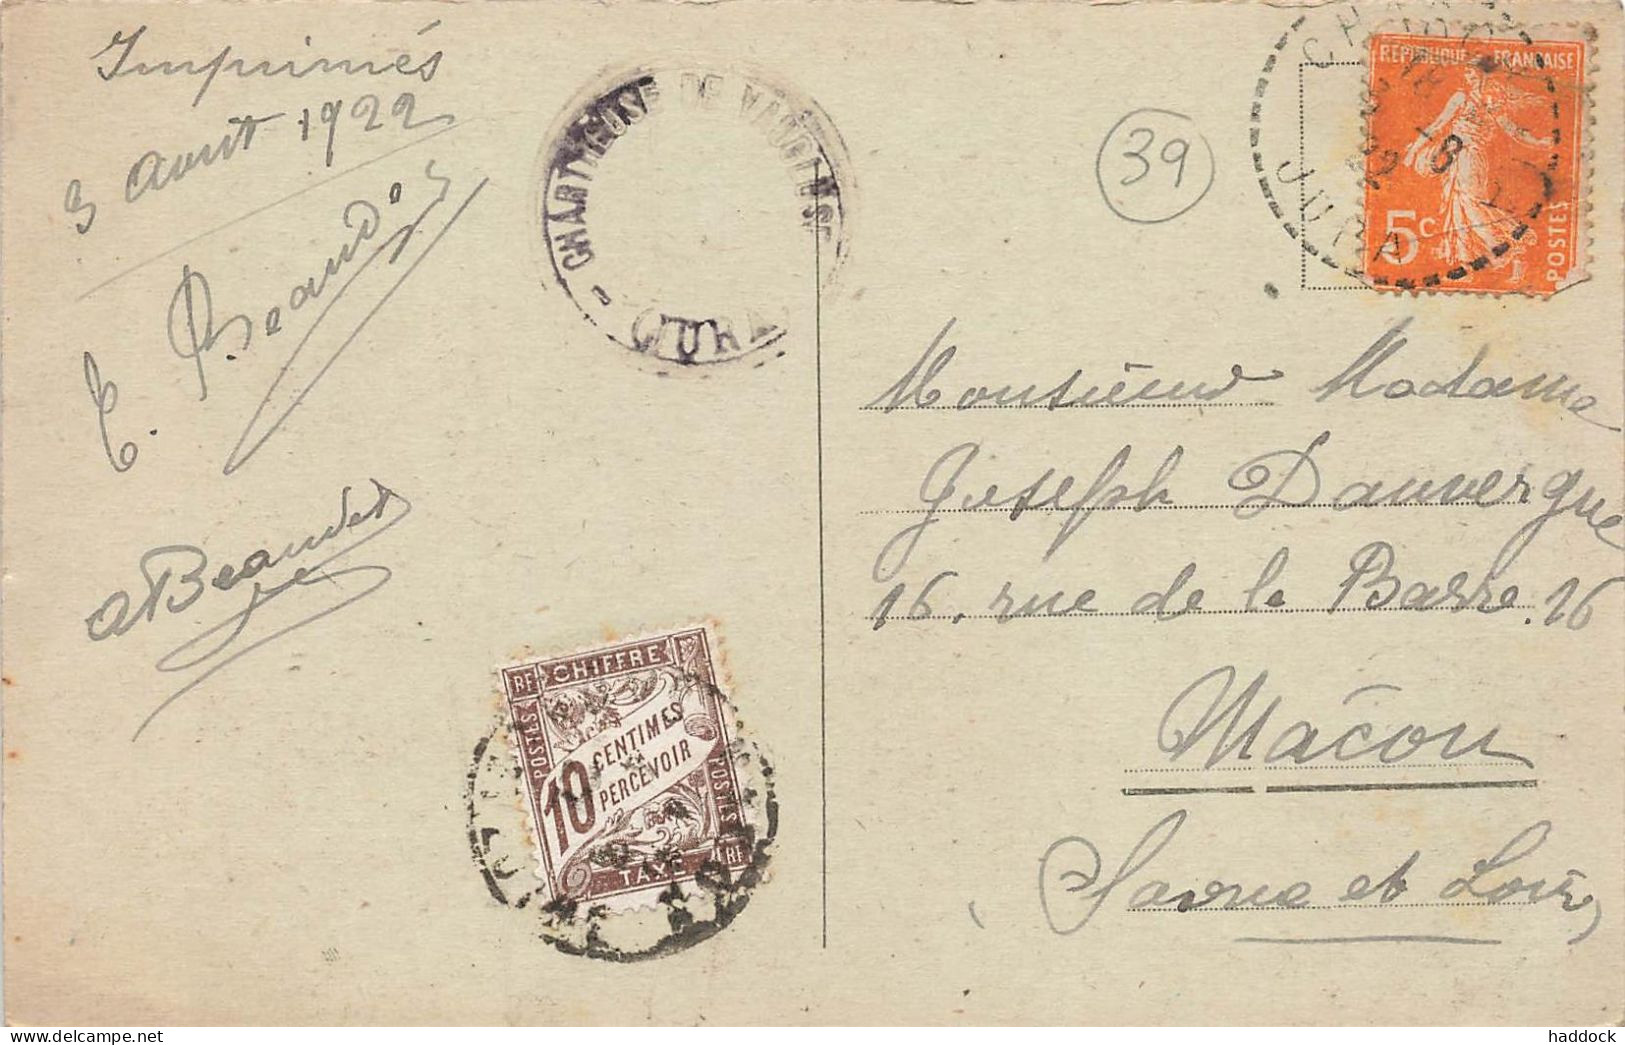 Imprimés
3 Aout 1922
E. Beaudet
A Beaudet
CHARTREUSE DE VAUCLUSE
JURA
39
JURA
18
-8
22
REPUBLIQUE FRANÇAISE
5c
POSTES
Monsieur Madame
Joseph Dauvergne
16, rue de la Barre. 16
Mâcon
(Saone et Loire)
RF CHIFFRE
POSTES
10 CENTIMES
PERCEVOIR
POSTES
TAXE RF
haddock